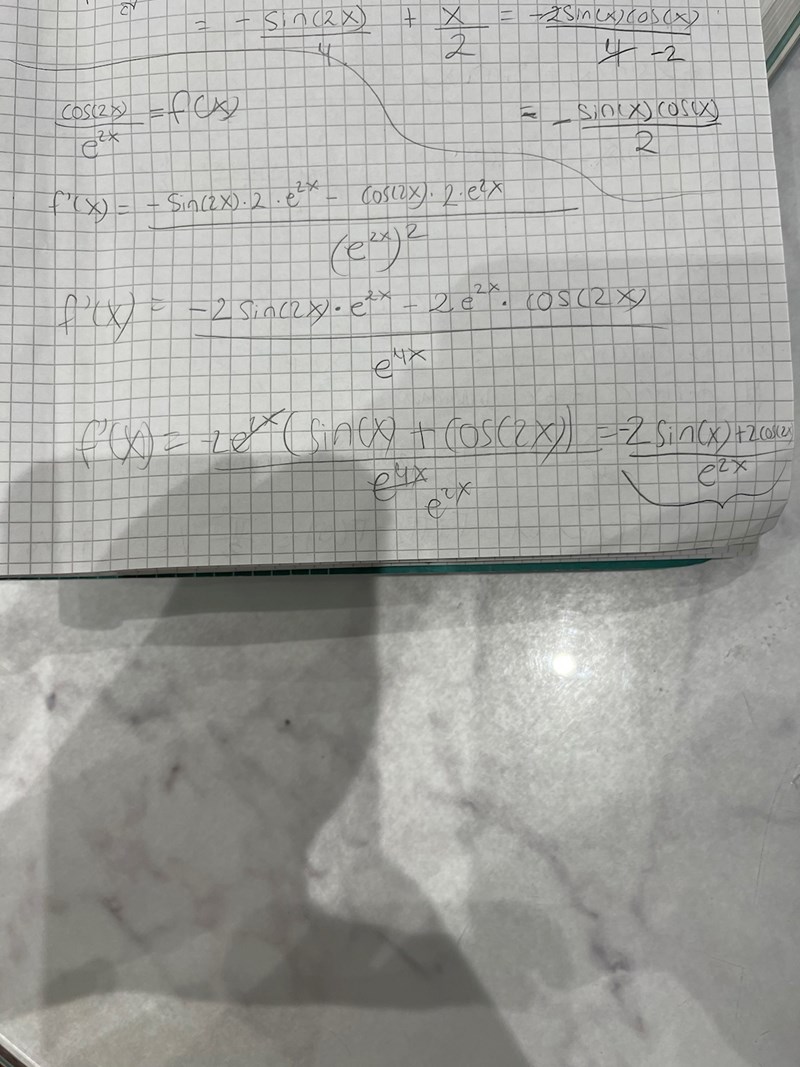 = - sin(2x)/4 + x/2 = -2sin(x)cos(x)/4 -2
cos(2x)/e^2x = f(x)
= - sin(x)cos(x)/2
f'(x) = -sin(2x)·2·e^2x - cos(2x)·2·e^2x/(e^2x)^2
f'(x) = -2sin(2x)·e^2x - 2e^2x·cos(2x)/e^4x
f'(x) = -2e^2x(sin(x)+cos(2x))/e^4x e^2x = -2sin(x)+2cos(2/e^2x